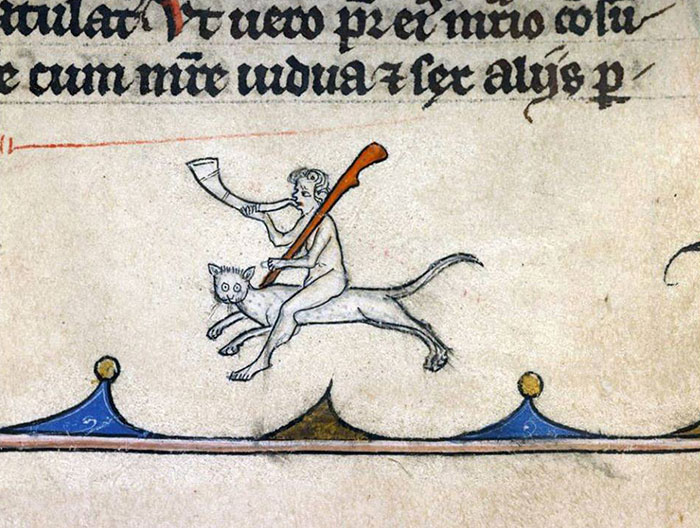 atulat Ut uero pr̄ ei᷒ initio cōsu
e cum mr̄e uidua ⁊ sex alijs p